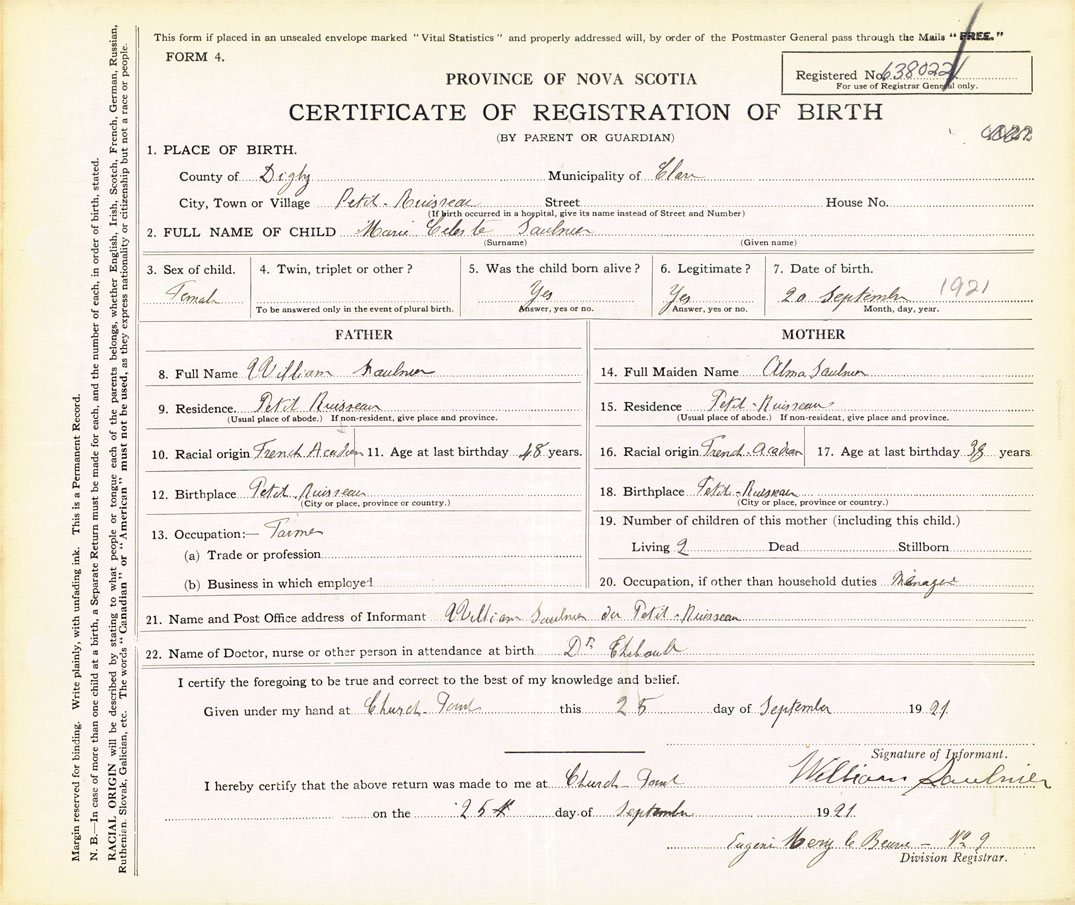 This form if placed in an unsealed envelope marked "Vital Statistics" and properly addressed will, by order of the Postmaster General pass through the Mails "FREE."
FORM 4.
PROVINCE OF NOVA SCOTIA
Registered No. 638022
For use of Registrar General only.
CERTIFICATE OF REGISTRATION OF BIRTH
(BY PARENT OR GUARDIAN)
1. PLACE OF BIRTH.
County of Digby Municipality of Clare
City, Town or Village Petit-Ruisseau Street House No.
(If birth occurred in a hospital, give its name instead of Street and Number)
2. FULL NAME OF CHILD Marie Celeste Saulnier
(Surname) (Given name)
3. Sex of child. 4. Twin, triplet or other? 5. Was the child born alive? 6. Legitimate? 7. Date of birth.
Female Yes Yes 20 September 1921
To be answered only in the event of plural birth. Answer, yes or no. Answer, yes or no. Month, day, year.
FATHER
8. Full Name William Saulnier
9. Residence. Petit Ruisseau
(Usual place of abode.) If non-resident, give place and province.
10. Racial origin French Acadien 11. Age at last birthday 48 years.
12. Birthplace Petit-Ruisseau
(City or place, province or country.)
13. Occupation:— Farmer
(a) Trade or profession
(b) Business in which employed
MOTHER
14. Full Maiden Name Alma Saulnier
15. Residence Petit-Ruisseau
(Usual place of abode.) If non-resident, give place and province.
16. Racial origin French-Acadian 17. Age at last birthday 38 years
18. Birthplace Petit-Ruisseau
(City or place, province or country.)
19. Number of children of this mother (including this child.)
Living 2 Dead Stillborn
20. Occupation, if other than household duties
21. Name and Post Office address of Informant William Saulnier du Petit-Ruisseau
22. Name of Doctor, nurse or other person in attendance at birth Dr
I certify the foregoing to be true and correct to the best of my knowledge and belief.
Given under my hand at Church-Point this 25 day of September 1921
Signature of Informant.
William Saulnier
I hereby certify that the above return was made to me at Church-Point
on the 25th day of September 1921.
No 9
Division Registrar.
Margin reserved for binding. Write plainly, with unfading ink. This is a Permanent Record.
N. B.—In case of more than one child at a birth, a Separate Return must be made for each, and the number of each, in order of birth, stated.
RACIAL ORIGIN will be described by stating to what people or tongue each of the parents belongs, whether English, Irish, Scotch, French, German, Russian,
Ruthenian, Slovak, Galician, etc. The words "Canadian" or "American" must not be used, as they express nationality or citizenship but not a race or people.